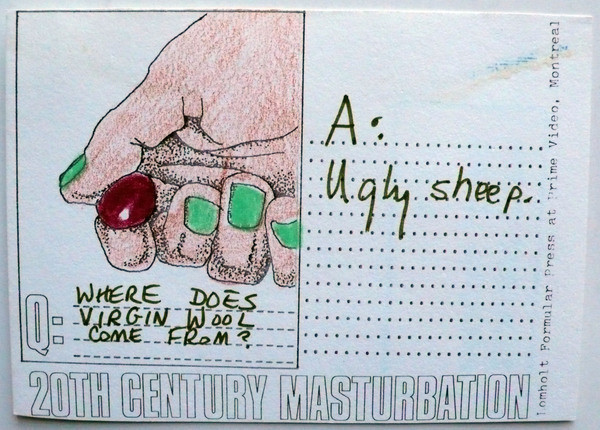 Q:
WHERE DOES
VIRGIN WOOL
COME FROM?
A:
Ugly sheep.
20TH CENTURY MASTURBATION
Lomholt Formular Press at Prime Video, Montreal